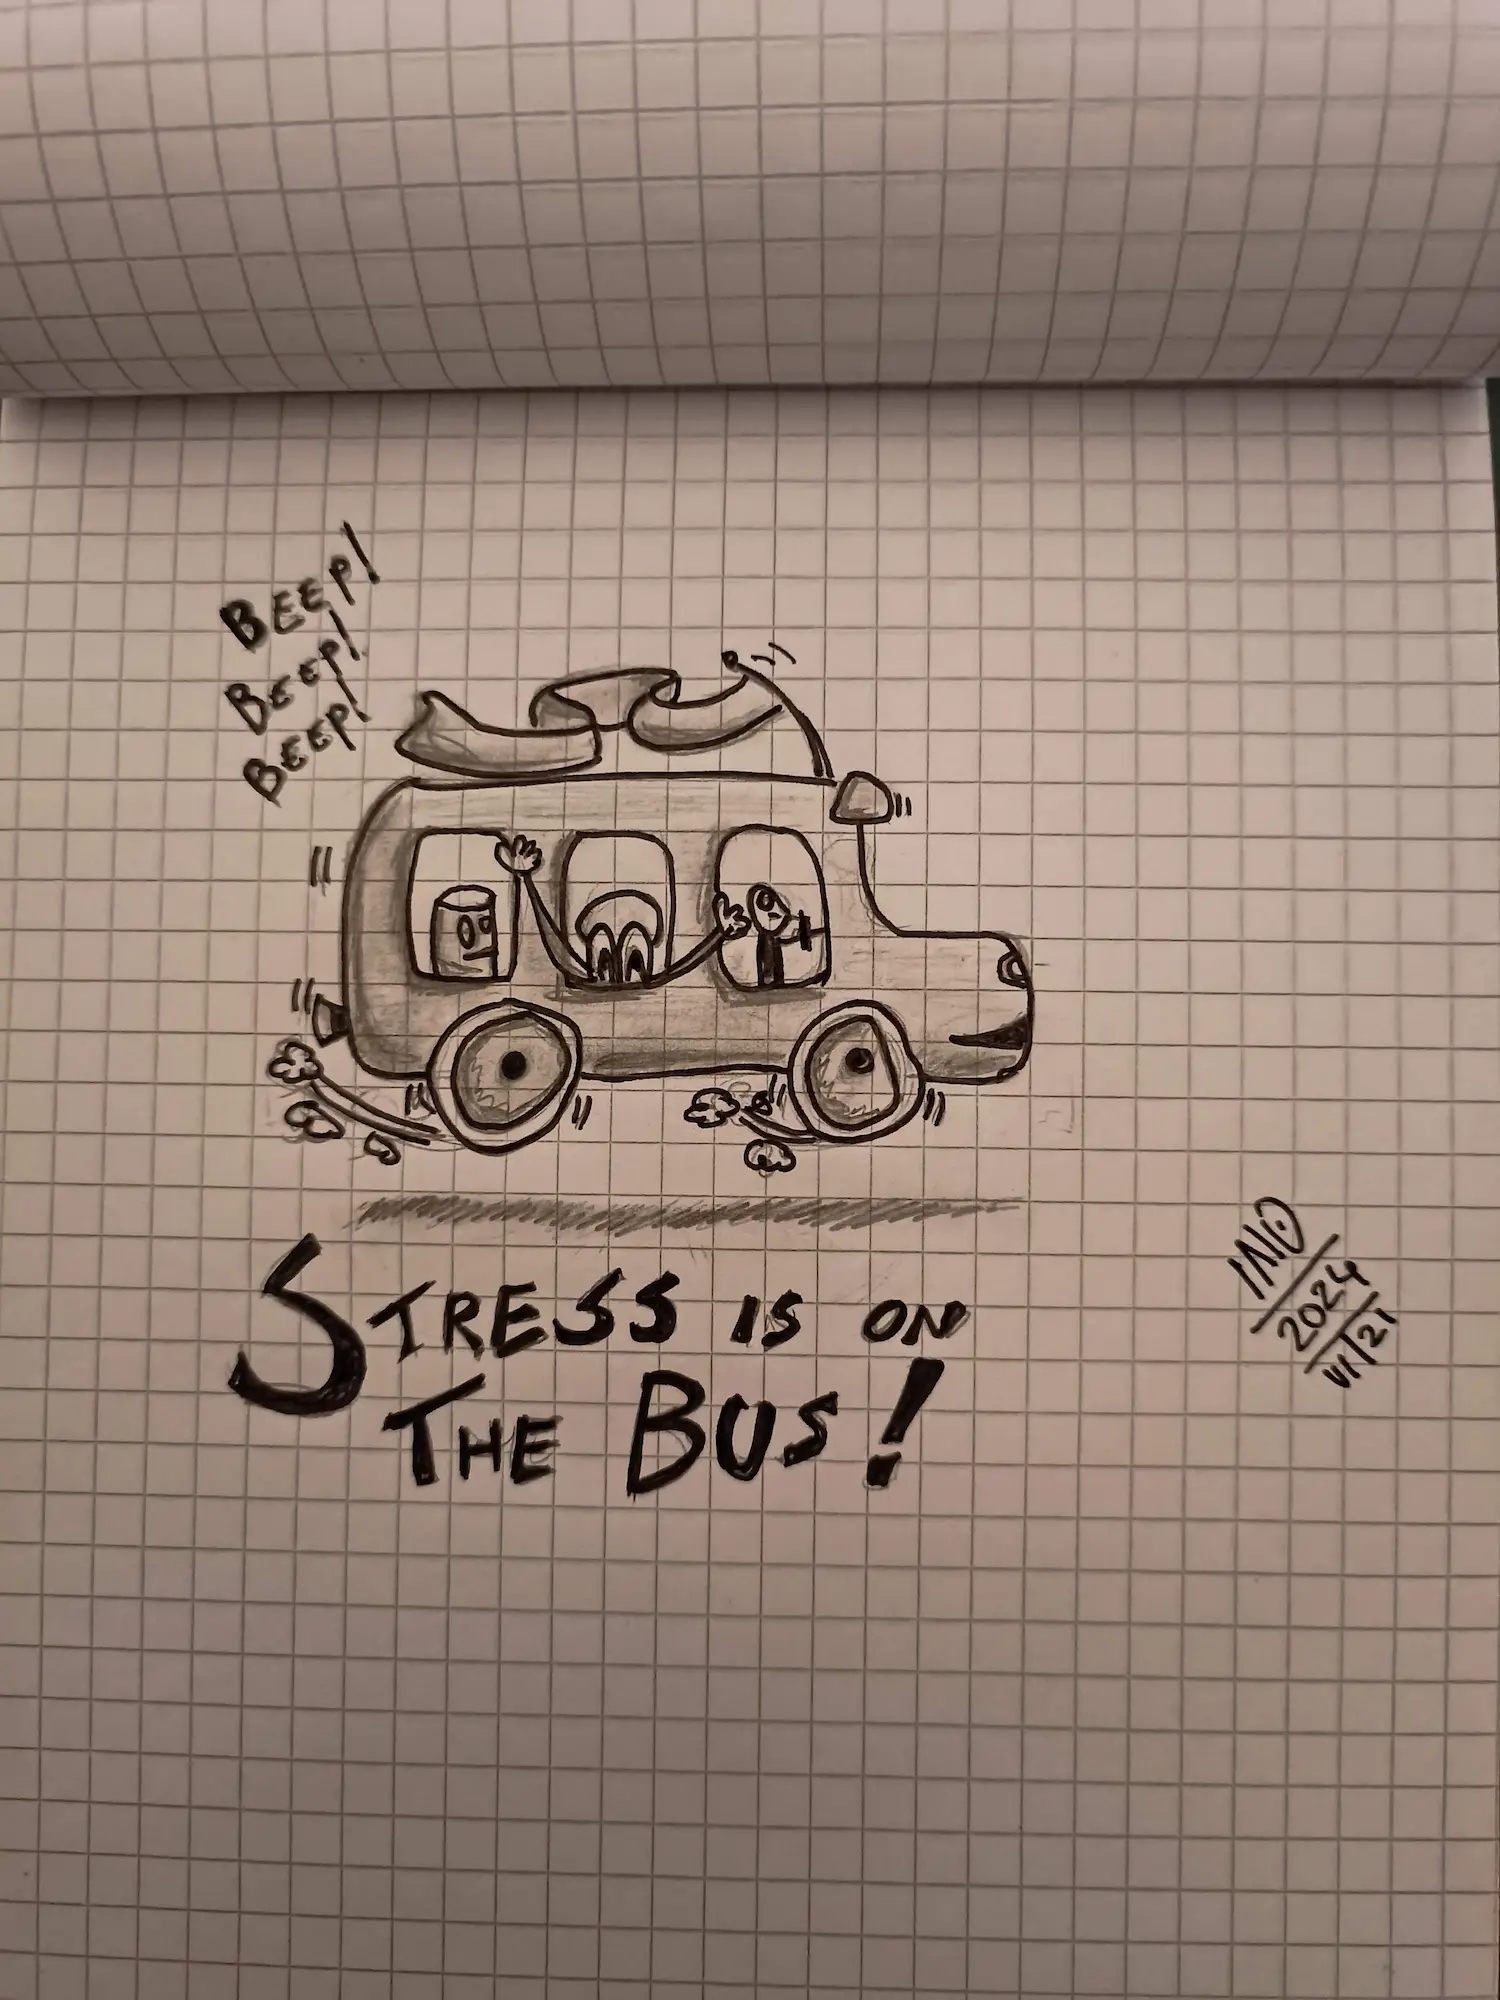 BEEP!
BEEP!
BEEP!
STRESS IS ON
THE BUS!
2024
VI/21